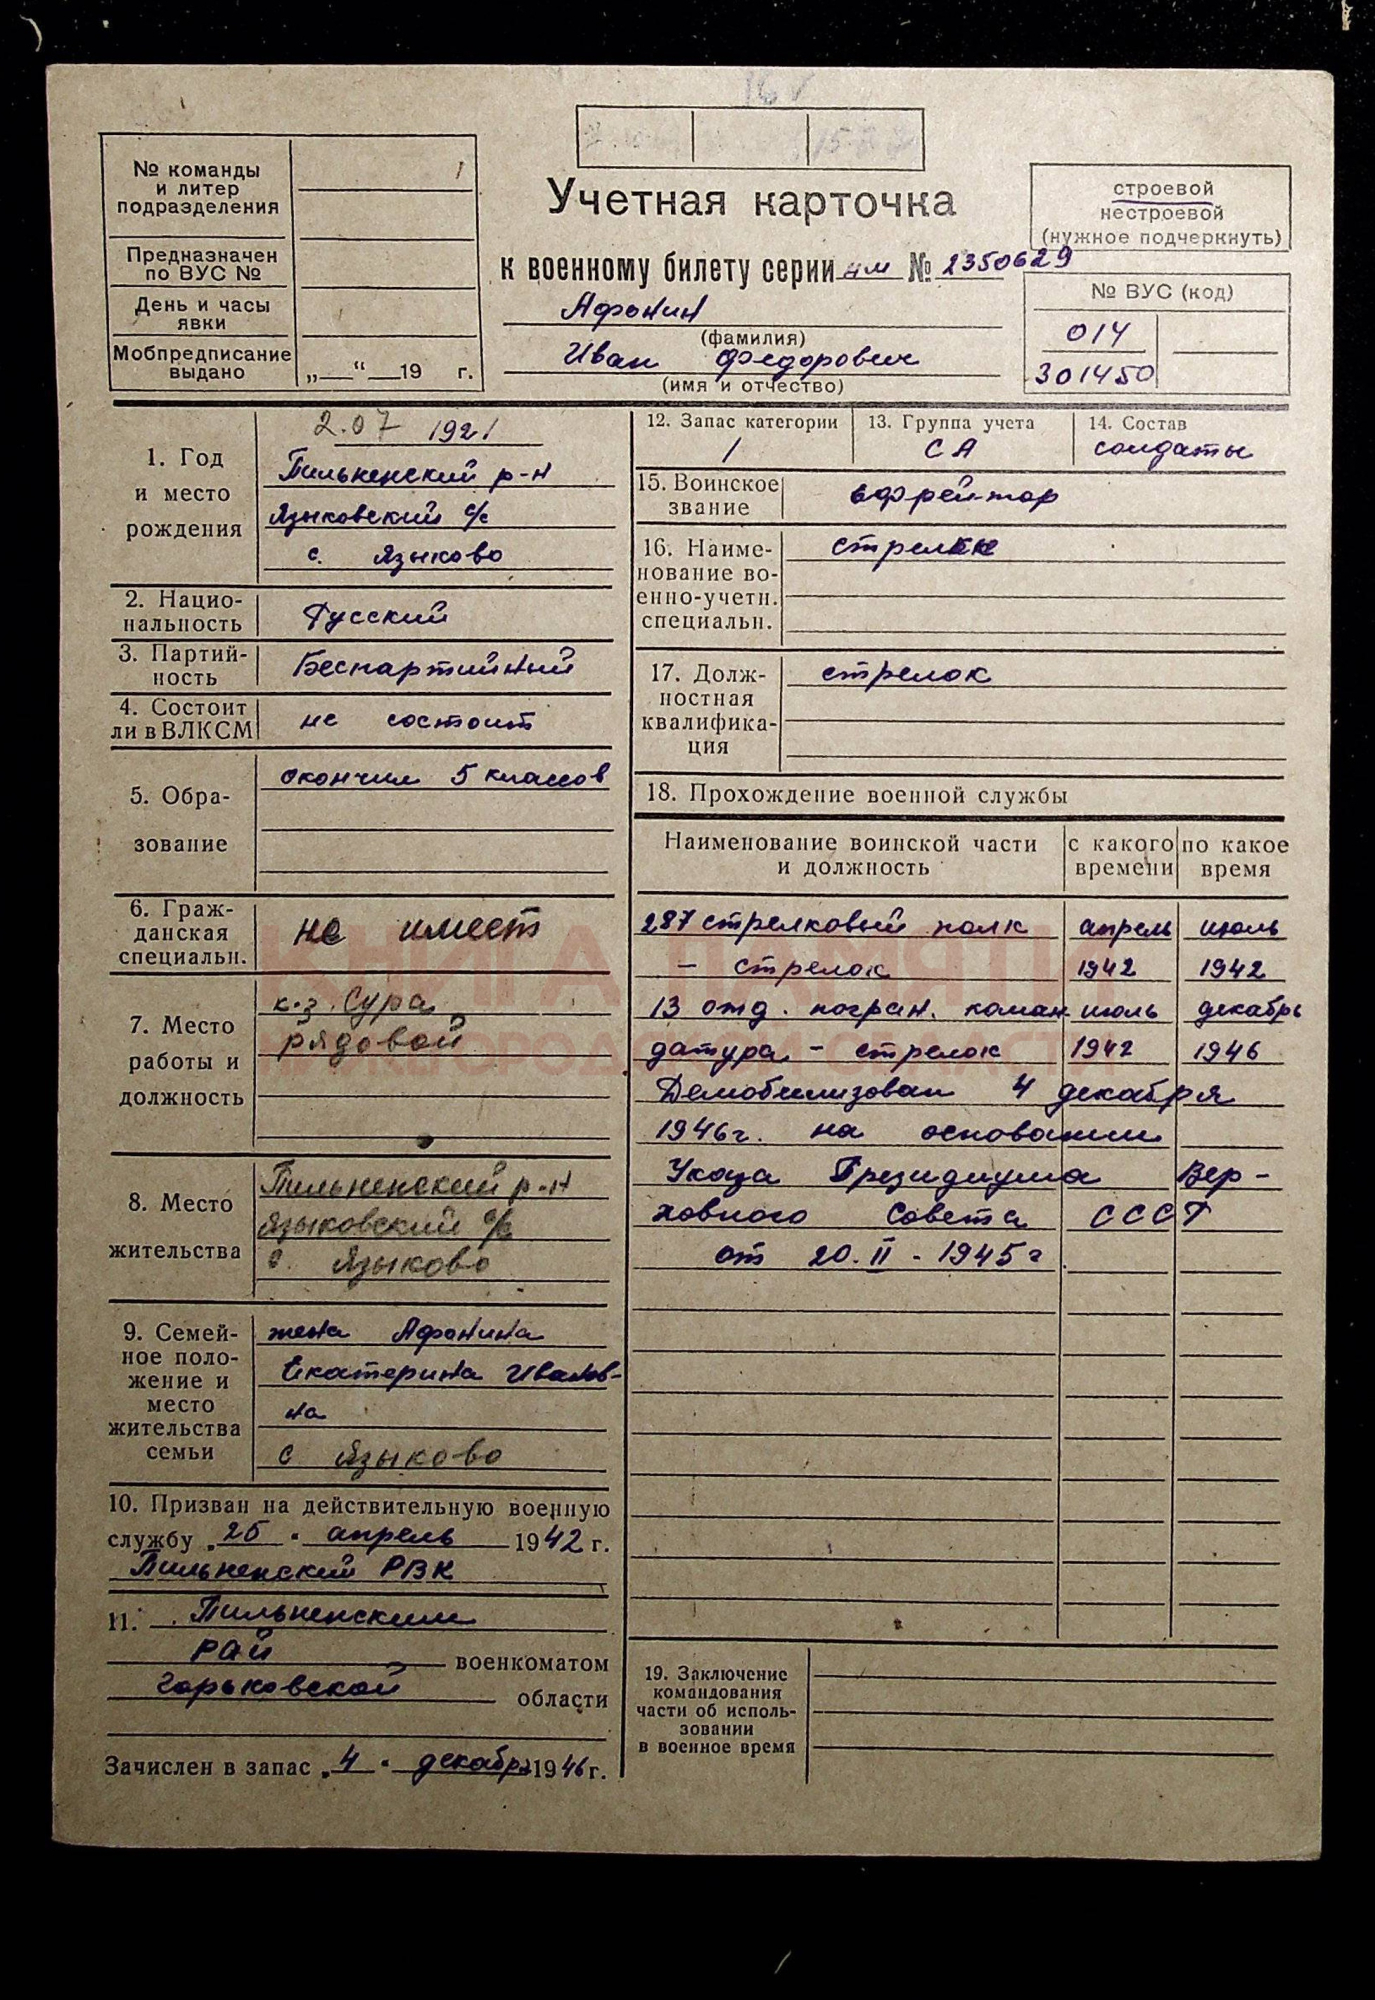 16
№ команды
и литер
подразделения
Предназначен
по ВУС №
День и часы
явки
Мобпредписание
выдано
„ “ 19 г.
Учетная карточка
к военному билету серии нм № 2350629
Афонин
(фамилия)
Иван Федорович
(имя и отчество)
строевой
нестроевой
(нужное подчеркнуть)
№ ВУС (код)
014
301450
1. Год
и место
рождения
2.07 1921
Пильненский р-н
Языковский с/с
с. Языково
2. Нацио-
нальность
Русский
3. Партий-
ность
Беспартийный
4. Состоит
ли в ВЛКСМ
не состоит
5. Обра-
зование
окончил 5 классов
6. Граж-
данская
специальн.
не имеет
7. Место
работы и
должность
к-з. Сура
рядовой
8. Место
жительства
Пильненский р-н
Языковский с/с
с. Языково
9. Семей-
ное поло-
жение и
место
жительства
семьи
жена Афонина
Екатерина Иванов-
на
с Языково
10. Призван на действительную военную
службу „25“ апрель 1942 г.
Пильненский РВК
11. Пильненским
РАЙ военкоматом
Горьковской области
Зачислен в запас „4“ декабря 1946 г.
12. Запас категории
1
13. Группа учета
СА
14. Состав
солдаты
15. Воинское
звание
ефрейтор
16. Наиме-
нование во-
енно-учетн.
специальн.
17. Долж-
ностная
квалифика-
ция
стрелок
18. Прохождение военной службы
Наименование воинской части
и должность
с какого
времени
по какое
время
287 стрелковый полк апрель июль
- стрелок 1942 1942
13 отд. погран. коман июль декабрь
датура - стрелок 1942 1946
Демобилизован 4 декабря
1946г. на основании
Указа Президиума Вер-
ховного Совета СССР
от 20.II - 1945г
19. Заключение
командования
части об исполь-
зовании
в военное время
КНИГА ПАМЯТИ
НИЖЕГОРОДСКОЙ ОБЛАСТИ